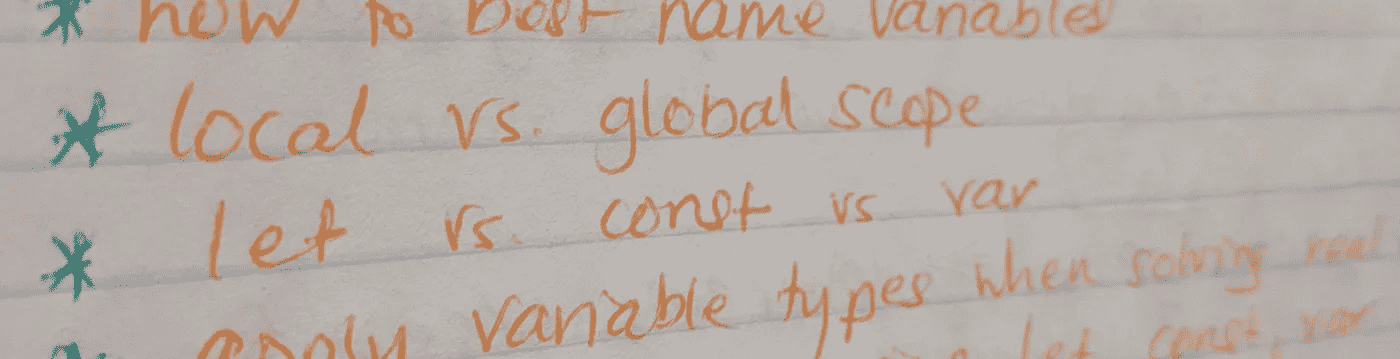 * how to best name variables
* local vs. global scope
* let vs. const vs var
* apply variable types when solving real
let const, var